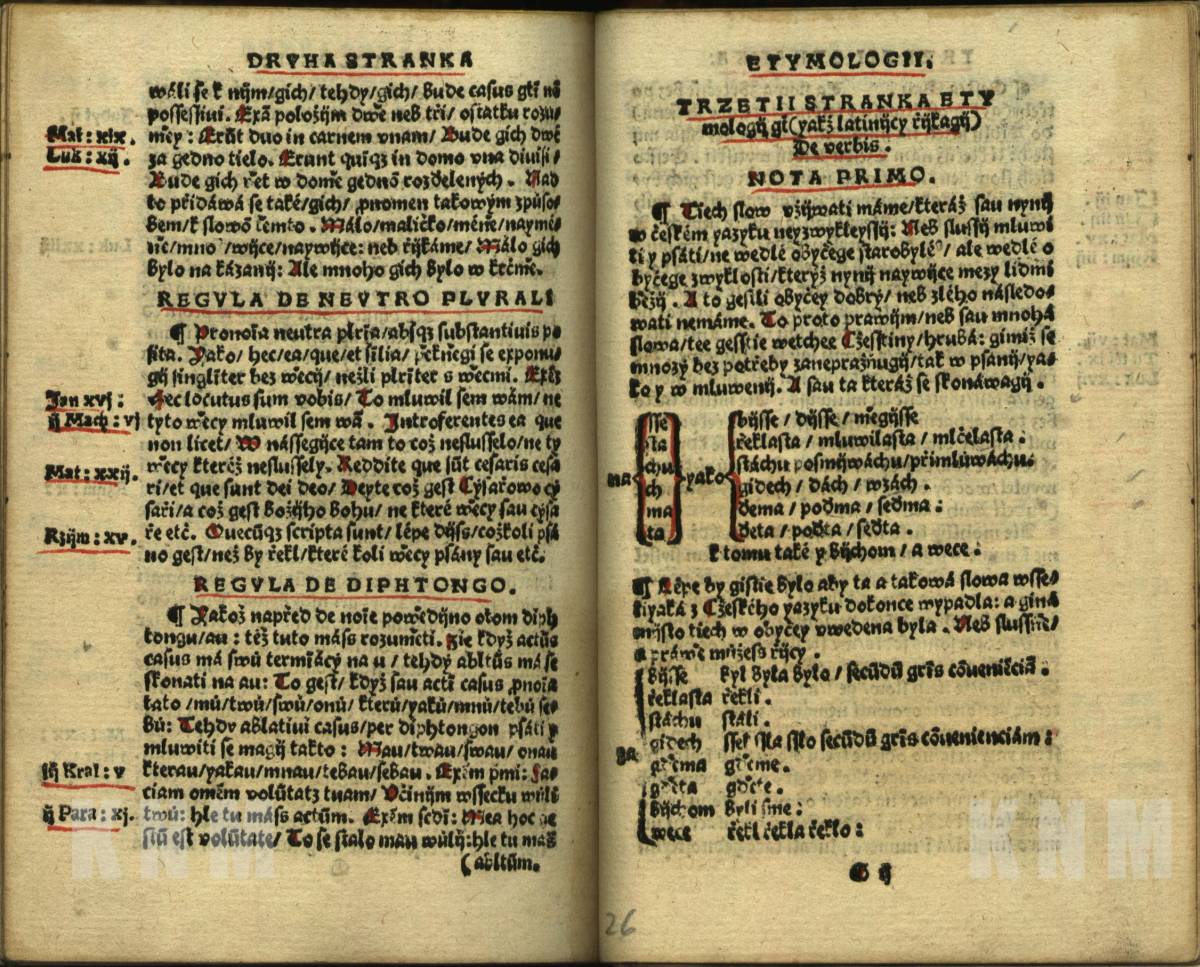 DRVHA STRANKA
wáli se k nijm/gich/ tehdy/gich/ Bude casus gti nō
possessiui. Exā položijm dwe neb tři/ ostatku rozu/
Mat: xix. mey: Erūt duo in carnem vnam/ Bude gich dwě
Luk: xij. za gedno tielo. Erunt quīqz in domo vna diuisi/
Bude gich pet w dome gednō rozdelených. Nad
to přidáwá se také/gich/ pnomen takowým způso/
bem/k slowō temto. Málo/maličko/méne/nayme/
ne/mno/wijce/naywijce: neb řijkáme/ Málo gich
bylo na kázanij: Ale mnoho gich bylo w krčme.
REGVLA DE NEVTRO PLVRALI
¶ Pronoīa neutra plrīa/absqz substantiuis po
sita. Yako/ hec/ea/que/et sīlia/ peknegi se exponu/
gij singlīter bez wecij/ nežli plrīter s wecmi. Exēz
Jan xvj: Hec locutus sum vobis/ To mluwil sem wám/ ne
ij Mach: vj tyto wecy mluwil sem wā. Introferentes ea que
non licet/ W nássegijce tam to což neslusselo/ne ty
Mat: xxij. wecy kteréž neslussely. Reddite que sūt cesaris cesa
ri/et que sunt dei deo/ Deyte což gest Cýsařowo cý
saři/a což gest Božijho Bohu/ ne které wecy sau cýsa
Rzijm: xv. ře etč. Quecūqz scripta sunt/ lépe dijss/cožkoli psá
no gest/než by řekl/které koli wecy psány sau etč.
REGVLA DE DIPHTONGO.
¶ Yakož napřed de noīe powedijno otom diph
tongu/au: též tuto máss rozumeti. Zie když actūs
casus má swū termīacý na u/ tehdy abltūs má se
skonati na au: To gest/ když sau actī casus pnoīa
tato/mū/twū/swū/onū/ kterū/yakū/mnū/tebū se/
bū: Tehdy ablatiui casus/per diphtongon psáti y
mluwiti se magij takto: Mau/twau/swau/ onau
iij Kral: v kterau/yakau/mnau/tebau/sebau. Exēm pmi: Fa/
ciam omēm volūtatz tuam/ Včinijm wssecku wūli
ij Para: xj. twū: hle tu máss actūm. Exēm scdī: Mea hoc ge
stū est volūtate/ To se stalo mau wūlij:hle tu máš
(abltūm.
ETYMOLOGII.
TRZETII STRANKA ETY
mologij gt(yakž latinijcy řijkagij)
De verbis.
NOTA PRIMO.
¶ Tiech slow vžijwati máme/kteráž sau nynij
w českém yazyku neyzwykleyssij: Neb slussij mluwi
ti y psáti/ne wedlé obyčege starobylé/ ale wedlé o
byčege zwyklosti/kterýž nynij naywijce mezy lidmi
bežij. A to gestli obyčey dobrý/ neb zlého následo/
wati nemáme. To proto prawijm/neb sau mnohá
slowa/tee gesstie wetchee Czesstiny/hrubá: gimiž se
mnozý bez potřeby zaneprazňugij/tak w psánij/ya/
ko y w mluwenij. A sau ta kteráž se skonáwagij.
sse bijsse / dijsse / megijsse
sta řeklasta / mluwilasta / mlčelasta:
chu stáchu posmijwáchu/přimlúwáchu:
na ch yako gidech / dách / wzách.
ma dema / podma / sedma:
ta deta / podta / sedta.
k tomu také y bijchom / a wece:
¶ Lépe by gistie bylo aby ta a taková slowa wsse/
liyaká z Czeského yazyku dokonce wypadla: a giná
mijsto tiech w obyčey vwedena byla. Neb slussne/
a práwe mūžess řijcy.
bijsse byl byla bylo / secūdū grīs cōueniēciā.
řeklasta řekli.
stáchu stáli.
za gidech ssel ssla sslo secūdū grīs cōuenienciām:
gdema gdeme.
gdeta gdete.
bijchom byli sme:
wece řekl řekla řeklo:
G ij
26
KNM
KNM